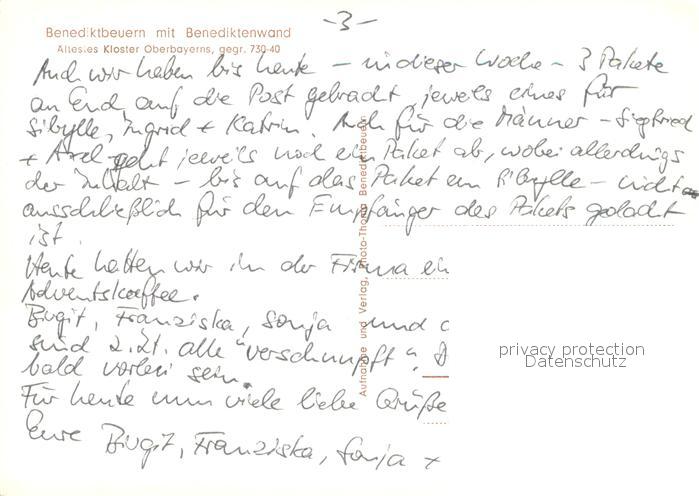 -3-
Benediktbeuern mit Benediktenwand
Ältestes Kloster Oberbayerns, gegr. 730-40
Auch wir haben bis heute - in dieser Woche - 3 Pakete
an Euch auf die Post gebracht, jeweils eines für
Sibylle, Ingrid + Katrin. Auch für die Männer - Siegfried
+ Axel - geht jeweils noch ein Paket ab, wobei allerdings
der Inhalt - bis auf das Paket an Sibylle - nicht
ausschließlich für den Empfänger des Pakets gedacht
ist.
Heute hatten wir in der Firma ein
Adventskaffee.
Birgit, Franziska, Sonja und
sind z.Zt. alle "verschnupft".
bald vorbei sein.
Für heute nun viele liebe Grüße
Eure Birgit, Franziska, Sonja +
Aufnahme und Verlag, Photo- Benediktbeuern
privacy protection
Datenschutz